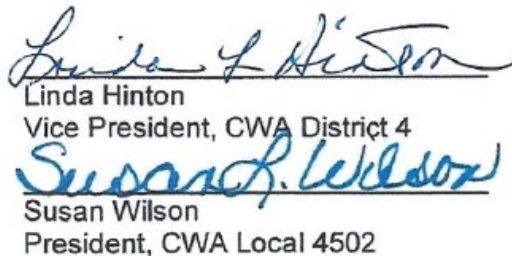 Linda L Hinton
Linda Hinton
Vice President, CWA District 4
Susan L. Wilson
Susan Wilson
President, CWA Local 4502